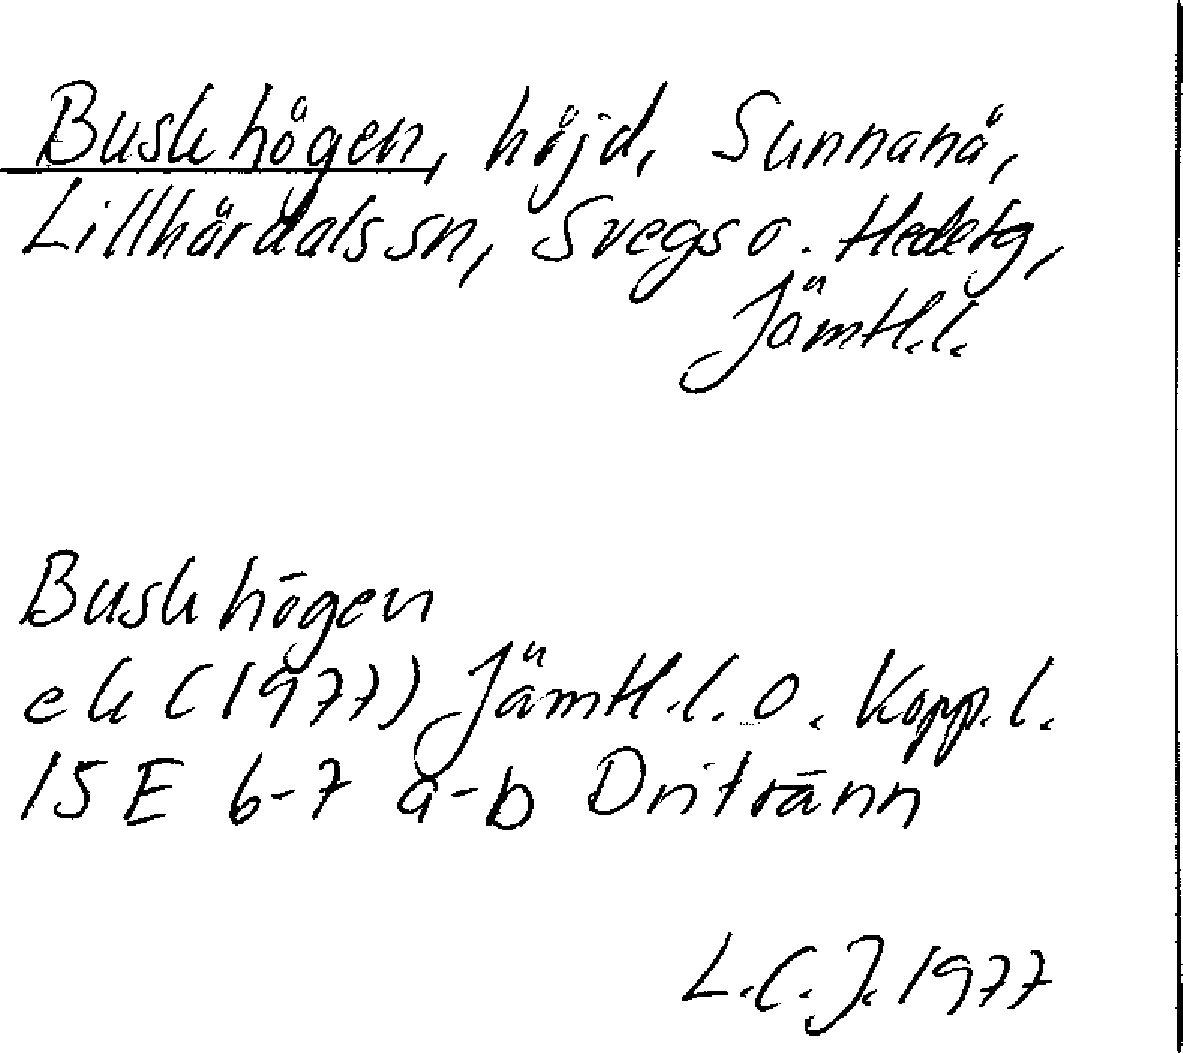 Buskhögen, höjd, Sunnanå,
Lillhärdals sn, Svegs o. Hedetg,
Jämtl.l.
Buskhögen
ek (1977) Jämtl.l. o. Kopp.l.
15 E 6-7 a-b Dritränn
L.C.J. 1977